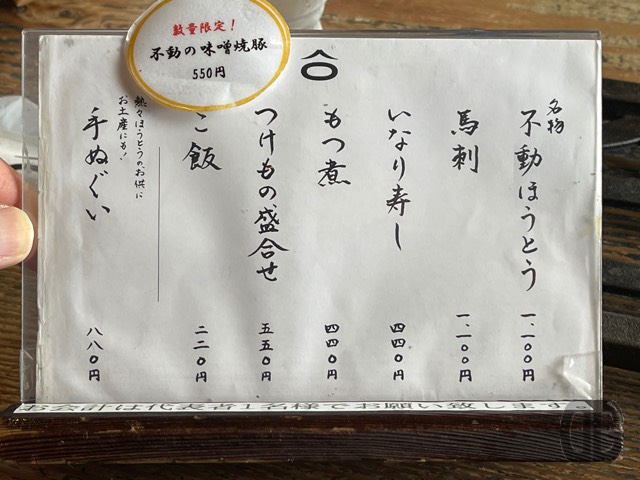 数量限定！
不動の味噌焼豚
550円
名物
不動ほうとう
一、二〇〇円
馬刺
一、二〇〇円
いなり寿し
四四〇円
もつ煮
四四〇円
つけもの盛合せ
五五〇円
飯
二二〇円
熱々ほうとうのお供に
お土産にも！
手ぬぐい
八八〇円
お会計は代表者1名様でお願い致します。